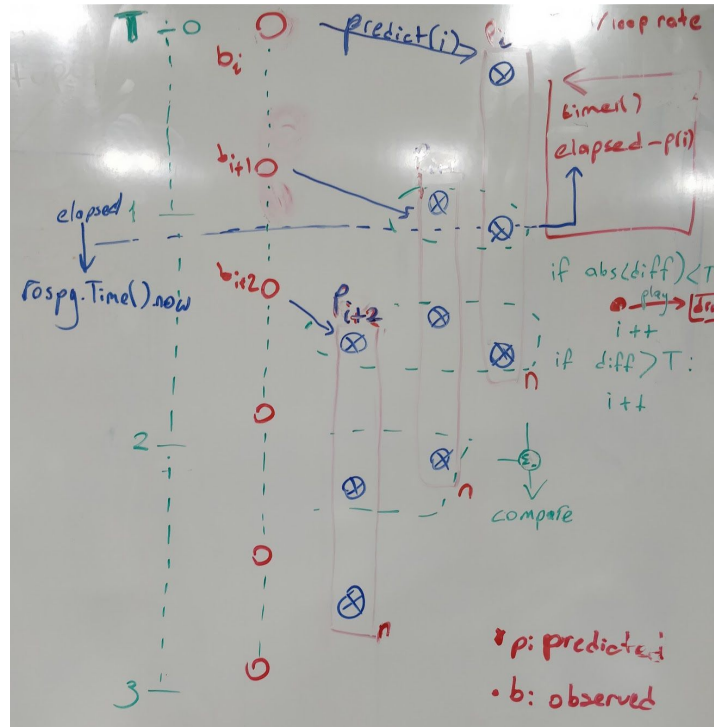 T 0
b_i
predict(i)
p_i
/loop rate
timer()
elapsed-p(i)
b_i+1
elapsed 1
rospg.Time().now
b_i+2
P_i+2
if abs(diff)<T
play
i++
if diff>T:
i++
n
2
n
Σ
compare
n
p: predicted
3
b: observed